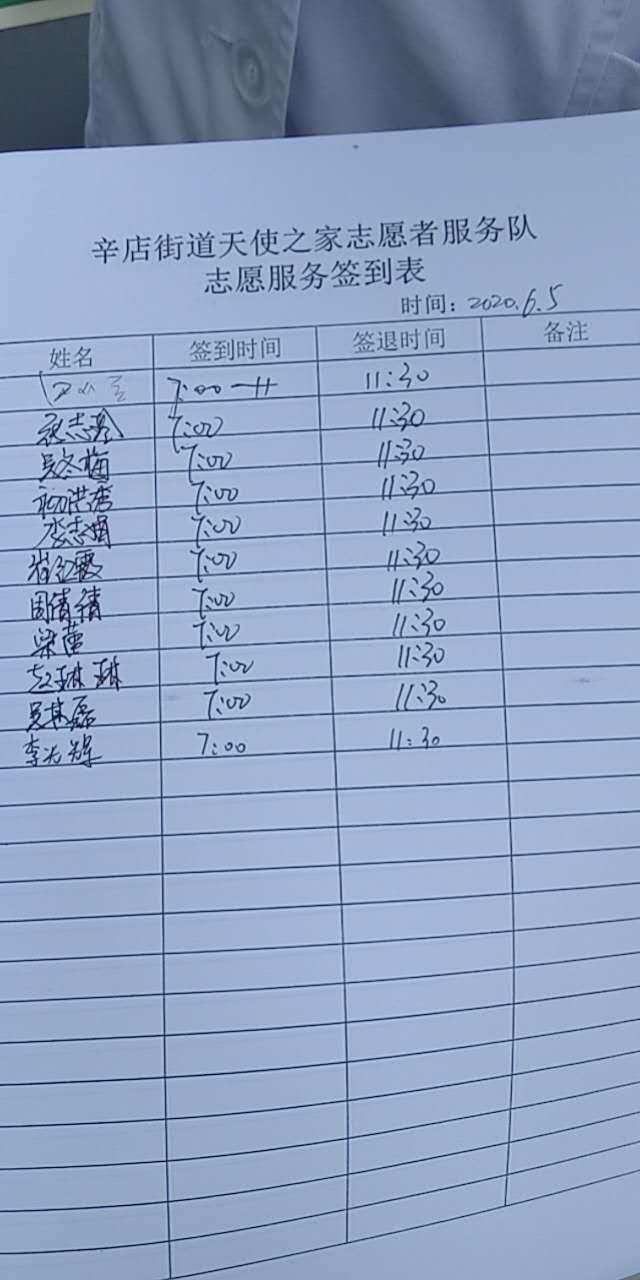 辛店街道天使之家志愿者服务队
志愿服务签到表
时间：2020.6.5
姓名 签到时间 签退时间 备注
7:00 11:30
7:00 11:30
吴冬梅 7:00 11:30
杨洪秀 7:00 11:30
李志娟 7:00 11:30
崔红霞 7:00 11:30
周倩倩 7:00 11:30
梁蕾 7:00 11:30
赵琳琳 7:00 11:30
吴其磊 7:00 11:30
李光辉 7:00 11:30